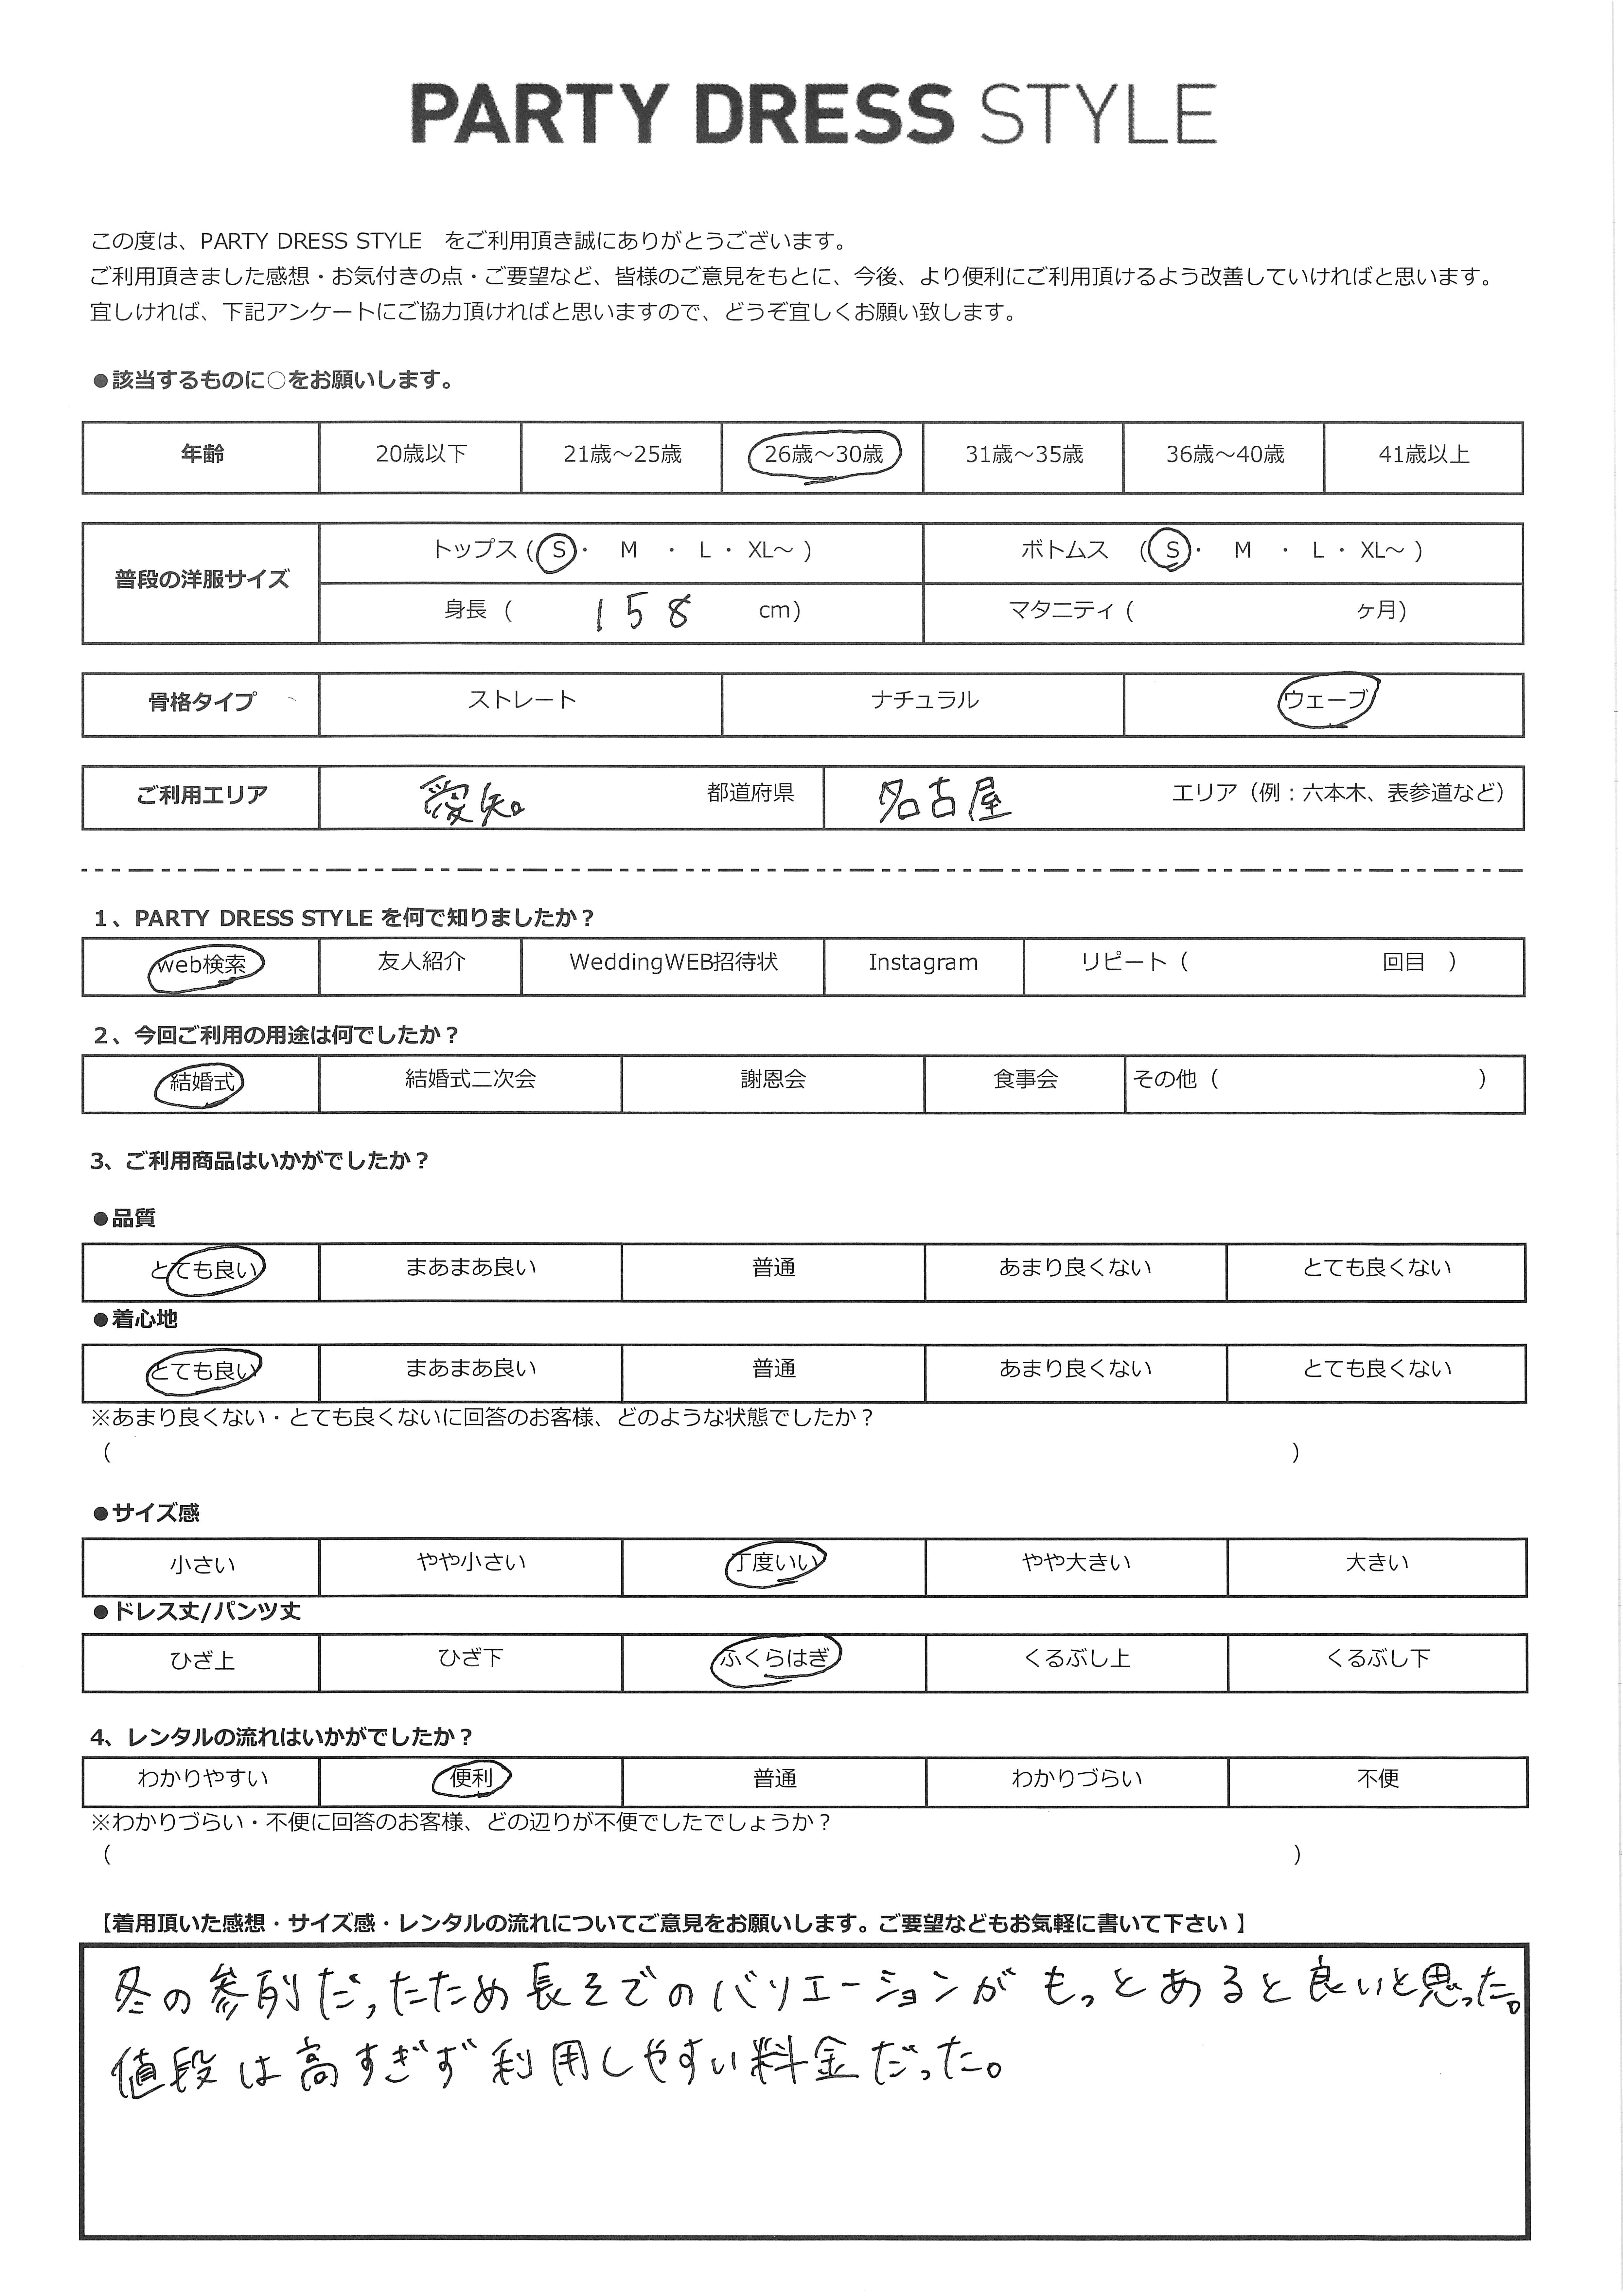 PARTY DRESS STYLE
この度は、PARTY DRESS STYLE をご利用頂き誠にありがとうございます。
ご利用頂きました感想・お気付きの点・ご要望など、皆様のご意見をもとに、今後、より便利にご利用頂けるよう改善していければと思います。
宜しければ、下記アンケートにご協力頂ければと思いますので、どうぞ宜しくお願い致します。
●該当するものに○をお願いします。
年齢 20歳以下 21歳～25歳 26歳～30歳 31歳～35歳 36歳～40歳 41歳以上
普段の洋服サイズ
トップス ( S ・ M ・ L ・ XL～ ) ボトムス ( S ・ M ・ L ・ XL～ )
身長 ( 158 cm) マタニティ ( ヶ月)
骨格タイプ ストレート ナチュラル ウェーブ
ご利用エリア 愛知 都道府県 名古屋 エリア（例：六本木、表参道など）
1、PARTY DRESS STYLE を何で知りましたか？
web検索 友人紹介 WeddingWEB招待状 Instagram リピート（ 回目 ）
2、今回ご利用の用途は何でしたか？
結婚式 結婚式二次会 謝恩会 食事会 その他（ ）
3、ご利用商品はいかがでしたか？
●品質
とても良い まあまあ良い 普通 あまり良くない とても良くない
●着心地
とても良い まあまあ良い 普通 あまり良くない とても良くない
※あまり良くない・とても良くないに回答のお客様、どのような状態でしたか？
（ ）
●サイズ感
小さい やや小さい 丁度いい やや大きい 大きい
●ドレス丈/パンツ丈
ひざ上 ひざ下 ふくらはぎ くるぶし上 くるぶし下
4、レンタルの流れはいかがでしたか？
わかりやすい 便利 普通 わかりづらい 不便
※わかりづらい・不便に回答のお客様、どの辺りが不便でしたでしょうか？
（ ）
【着用頂いた感想・サイズ感・レンタルの流れについてご意見をお願いします。ご要望などもお気軽に書いて下さい 】
冬の参列だったため長そでのバリエーションがもっとあると良いと思った。
値段は高すぎず利用しやすい料金だった。